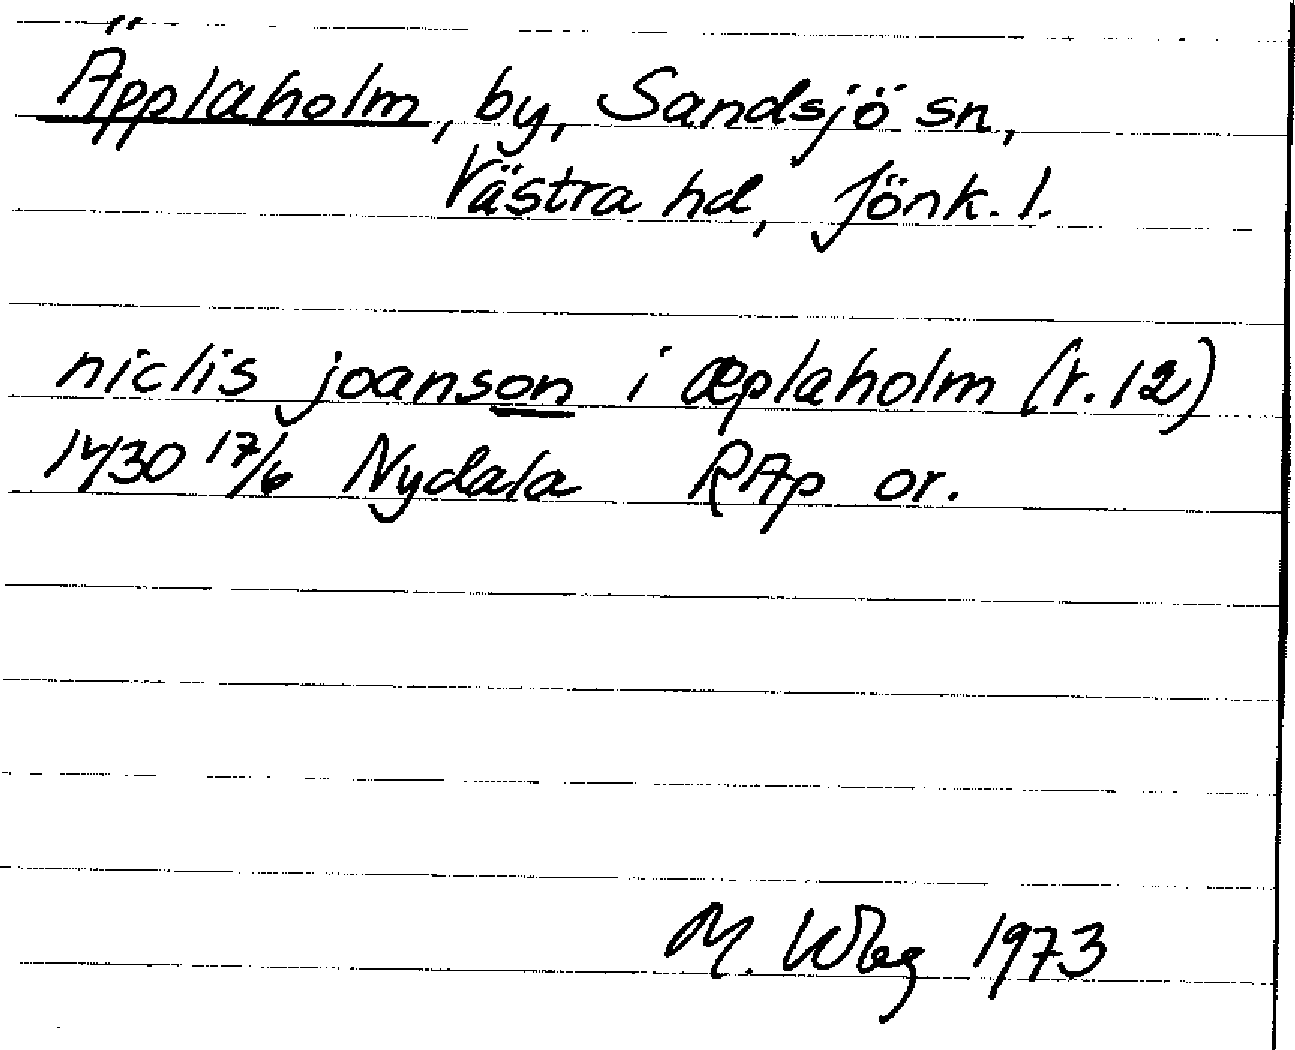 Äpplaholm, by, Sandsjö sn,
Västra hd, Jönk. l.
niclis joanson i æplaholm (r. 12)
1430 17/6 Nydala RAp or.
M. Wbg 1973